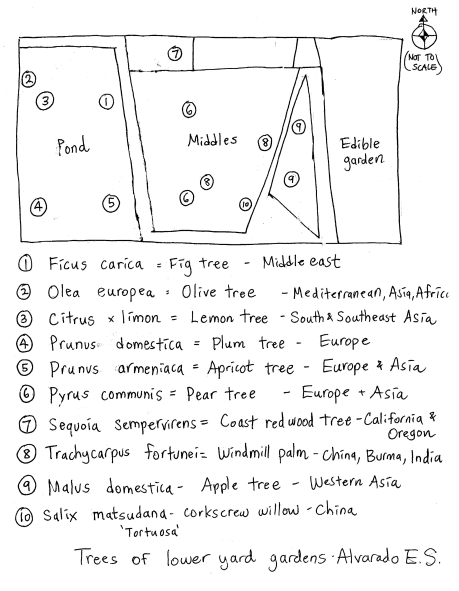 NORTH
(NOT TO
SCALE)
7
2
3
1
6
9
Pond
Middles
8
Edible
garden
8
9
4
5
6
10
1 Ficus carica = Fig tree - Middle east
2 Olea europea = Olive tree - Mediterranean, Asia, Africa
3 Citrus x limon = Lemon tree - South & Southeast Asia
4 Prunus domestica = Plum tree - Europe
5 Prunus armeniaca = Apricot tree - Europe & Asia
6 Pyrus communis = Pear tree - Europe + Asia
7 Sequoia sempervirens = Coast redwood tree - California &
Oregon
8 Trachycarpus fortunei = Windmill palm - China, Burma, India
9 Malus domestica - Apple tree - Western Asia
10 Salix matsudana - corkscrew willow - China
'Tortuosa'
Trees of lower yard gardens · Alvarado E.S.